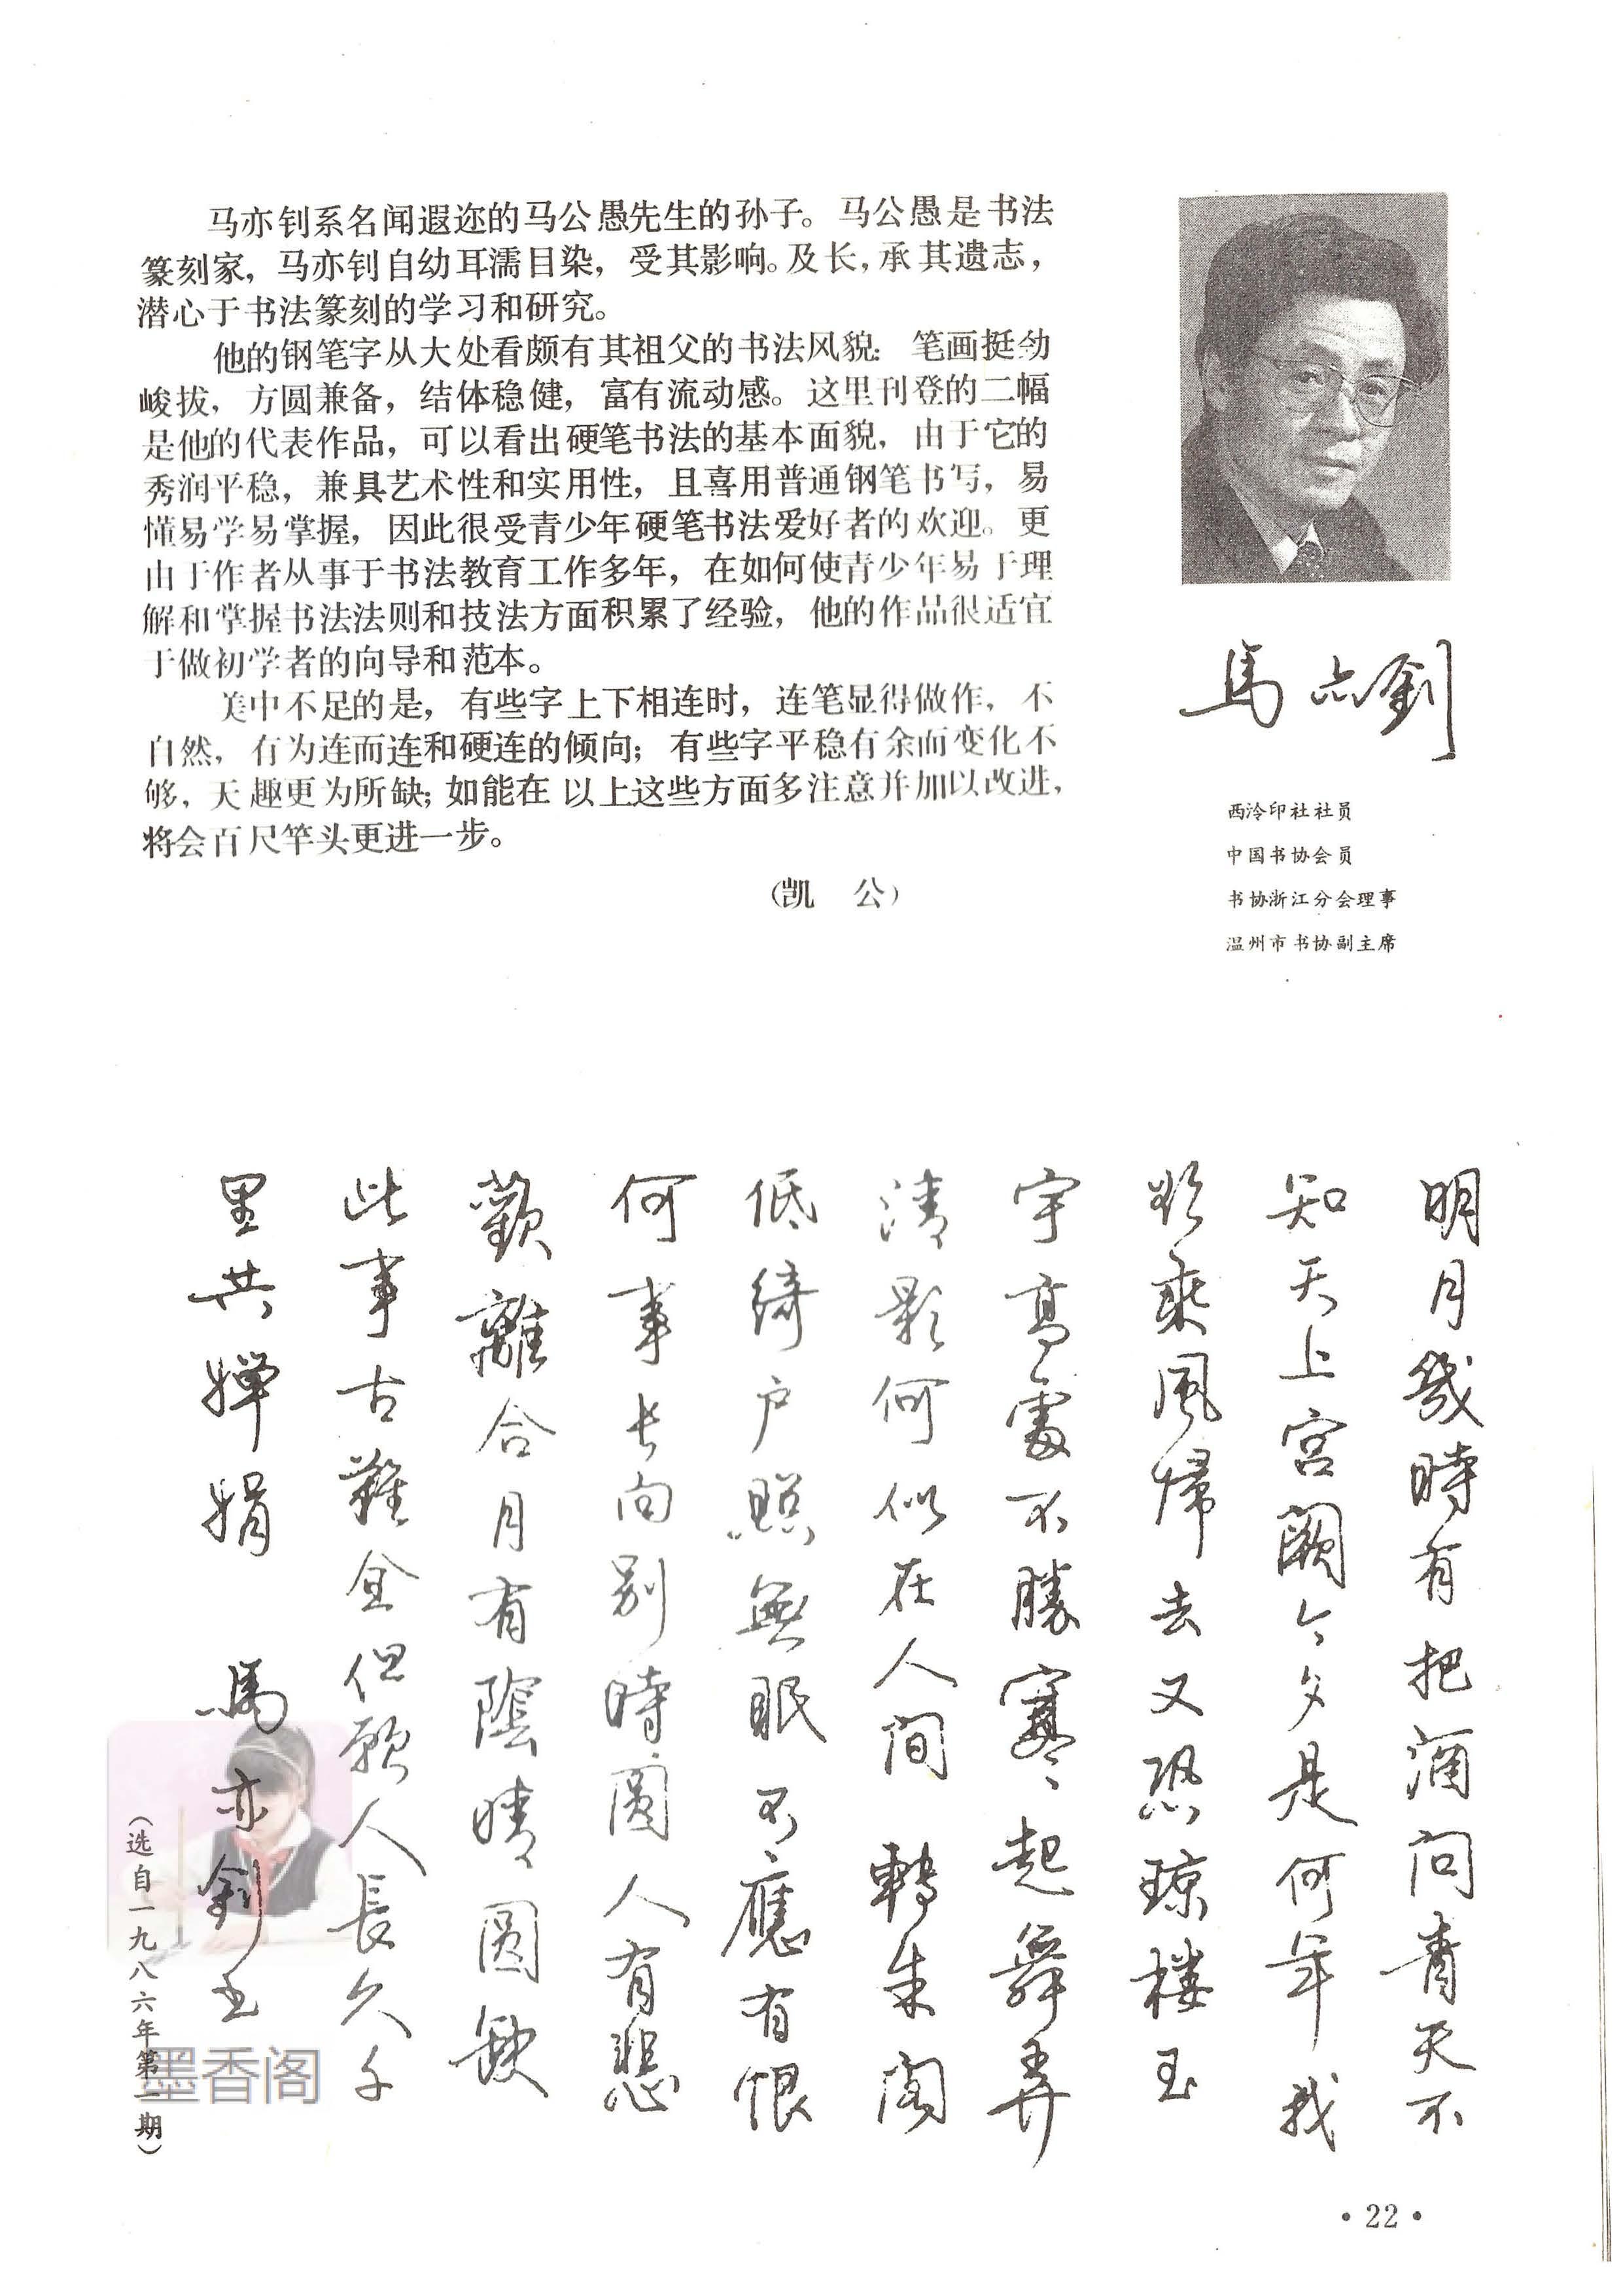 马亦钊系名闻遐迩的马公愚先生的孙子。马公愚是书法
篆刻家，马亦钊自幼耳濡目染，受其影响。及长，承其遗志，
潜心于书法篆刻的学习和研究。
他的钢笔字从大处看颇有其祖父的书法风貌：笔画挺劲
峻拔，方圆兼备，结体稳健，富有流动感。这里刊登的二幅
是他的代表作品，可以看出硬笔书法的基本面貌，由于它的
秀润平稳，兼具艺术性和实用性，且喜用普通钢笔书写，易
懂易学易掌握，因此很受青少年硬笔书法爱好者的欢迎。更
由于作者从事于书法教育工作多年，在如何使青少年易于理
解和掌握书法法则和技法方面积累了经验，他的作品很适宜
于做初学者的向导和范本。
美中不足的是，有些字上下相连时，连笔显得做作，不
自然，有为连而连和硬连的倾向；有些字平稳有余而变化不
够，天趣更为所缺；如能在以上这些方面多注意并加以改进，
将会百尺竿头更进一步。
（凯 公）
馬亦釗
西泠印社社员
中国书协会员
书协浙江分会理事
温州市书协副主席
明月幾時有把酒问青天不
知天上宫阙今夕是何年我
欲乘風歸去又恐琼楼玉
宇高處不勝寒起舞弄
清影何似在人间轉朱阁
低绮户照無眠不應有恨
何事长向别時圆人有悲
歡離合月有陰晴圆缺
此事古難全但願人長久千
里共嬋娟 馬亦釗书
（选自一九八六年第一期）
墨香阁
·22·